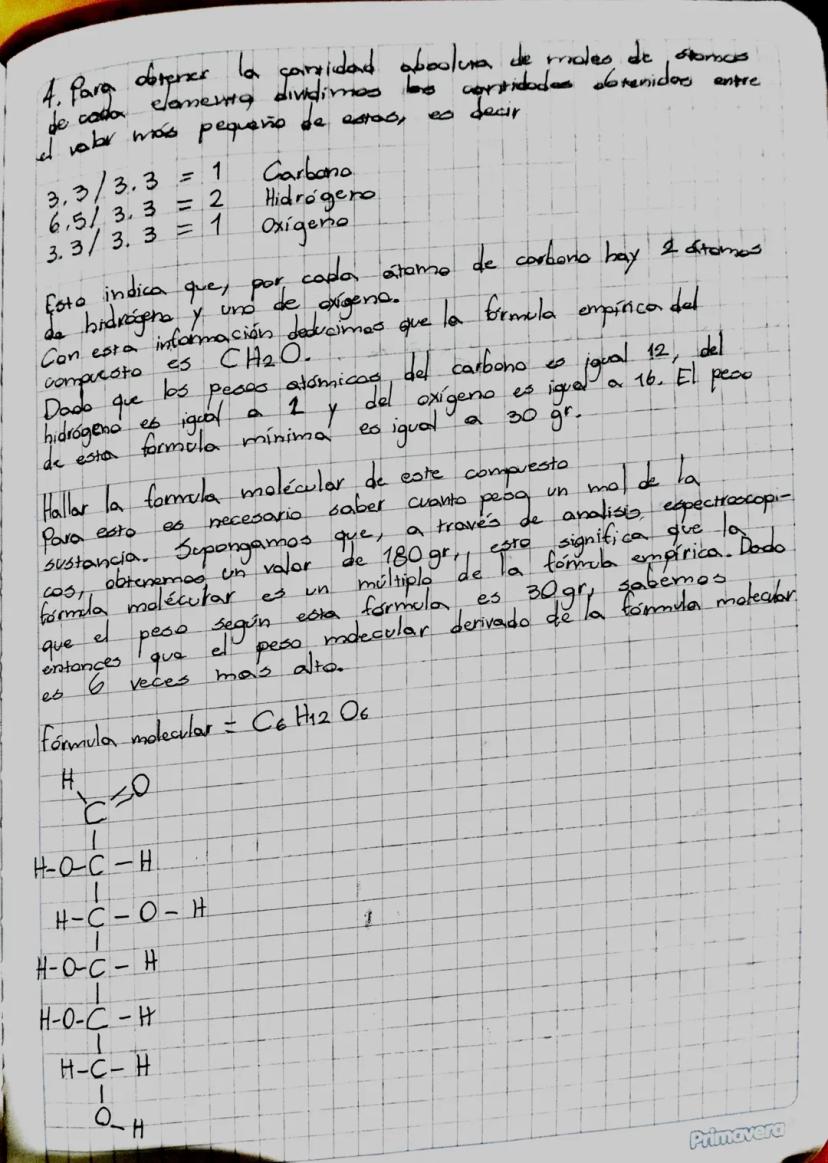 4. Para obtener la cantidad absoluta de moles de átomos
de cada elemento dividimos las cantidades obtenidas entre
el valor más pequeño de estas, es decir
3.3/3.3 = 1 Carbono
6.5/3.3 = 2 Hidrógeno
3.3/3.3 = 1 Oxígeno
Esto indica que, por cada átomo de carbono hay 2 átomos
de hidrógeno y uno de oxígeno.
Con esta información deducimos que la fórmula empírica del
compuesto es CH2O.
Dado que los pesos atómicos del carbono es igual 12, del
hidrógeno es igual a 1 y del oxígeno es igual a 16. El peso
de esta formula mínima es igual a 30 gr.
Hallar la formula molécular de este compuesto
Para esto es necesario saber cuanto pesa un mol de la
sustancia. Supongamos que, a través de analisis espectroscopi-
cos, obtenemos un valor de 180 gr, esto significa que la
fórmula molécular es un múltiplo de la fórmula empírica. Dado
que el peso según esta formula es 30 gr, sabemos
entonces que el peso molecular derivado de la fórmula molecular
es 6 veces mas alto.
fórmula molecular = C6 H12 O6
H
C=O
H-O-C-H
H-C-O-H
H-O-C-H
H-O-C-H
H-C-H
O-H
Primavera